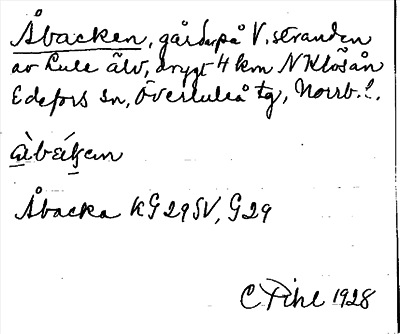 Åbacken, gårdar på V. stranden
av Lule älv, drygt 4 km N Klösån
Edefors sn, Överluleå tg, Norrb. l.
Åbacka KG 29 SV, G 29
C Pihl 1928